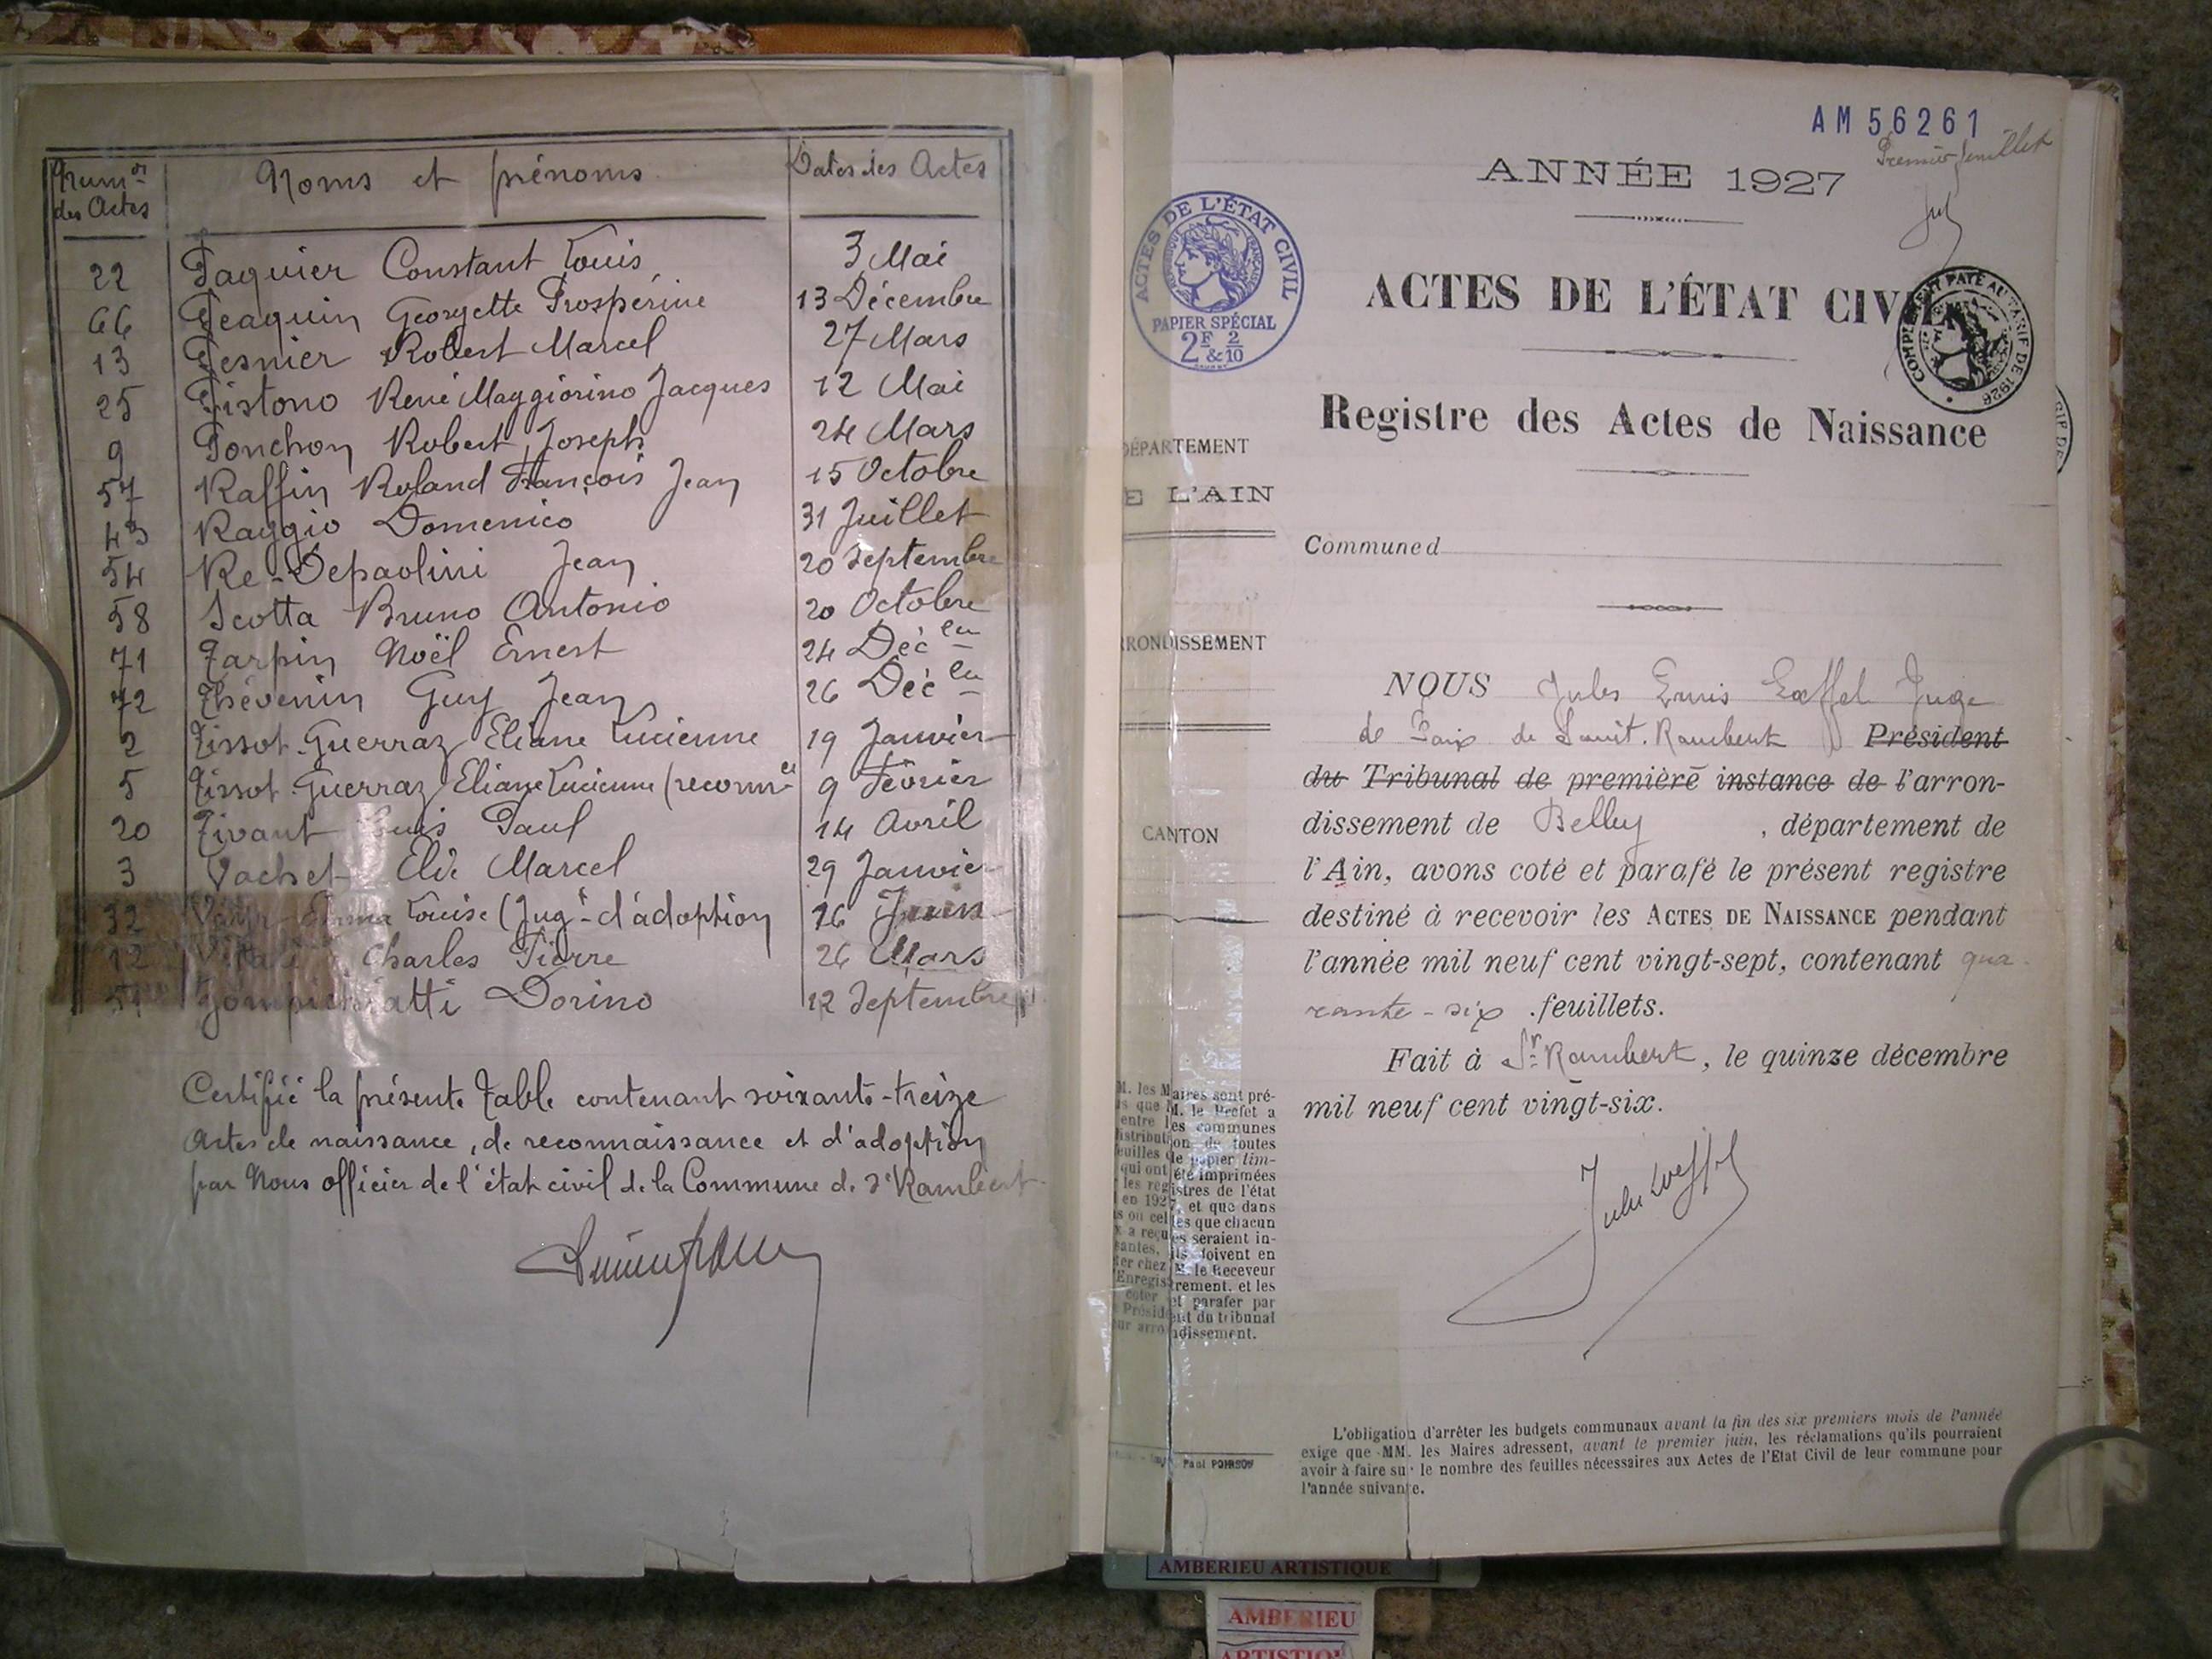 Num^os des Actes
Noms et prénoms
Dates des Actes
22 Paquier Constant Louis 3 Mai
66 Peaquin Georgette Prospérine 13 Décembre
13 Pesnier Robert Marcel 27 Mars
25 Pistono René Maggiorino Jacques 12 Mai
9 Ponchon Robert Joseph 24 Mars
57 Raffin Roland François Jean 15 Octobre
43 Raggio Domenico 31 Juillet
54 Re-Depaolini Jean 20 Septembre
58 Scotta Bruno Antonio 20 Octobre
71 Tarpin Noël Ernest 24 Déc
72 Thévenin Guy Jean 26 Déc
2 Tissot-Guerraz Eliane Lucienne 19 Janvier
5 Tissot-Guerraz Eliane Lucienne (reconn^ce 9 Février
20 Tivant Louis Paul 14 Avril
3 Vachet Elie Marcel 29 Janvier
32 Louise (Jug^t d'adoption 26 Juin
12 Charles Pierre 26 Mars
Dorino 12 Septembre
Certifié la présente Table contenant soixante-treize
Actes de naissance, de reconnaissance et d'adoption
par Nous officier de l'état civil de la Commune de S^t Rambert
AM 56261
Premier feuillet
ANNÉE 1927
ACTES DE L'ÉTAT CIVIL
PAPIER SPÉCIAL
2F 2/10
&
RÉPUBLIQUE FRANÇAISE
COMPLÉMENT PAYÉ AU TARIF DE 1926
ACTES DE L'ÉTAT CIVIL
Registre des Actes de Naissance
DÉPARTEMENT
E L'AIN
Commune d
RRONDISSEMENT
CANTON
NOUS Jules Louis Loeffel Juge
de Paix de Saint-Rambert Président
du Tribunal de première instance de l'arron-
dissement de Belley, département de
l'Ain, avons coté et parafé le présent registre
destiné à recevoir les ACTES DE NAISSANCE pendant
l'année mil neuf cent vingt-sept, contenant qua-
rante-six feuillets.
Fait à S^t Rambert, le quinze décembre
mil neuf cent vingt-six.
M. les Maires sont pré-
s que M. le Préfet a
entre les communes
istribution de toutes
euilles de papier tim-
qui ont été imprimées
les registres de l'état
en 1927, et que dans
s où celles que chacun
x a reçues seraient in-
santes, ils doivent en
er chez M. le Receveur
Enregistrement, et les
coter et parafer par
Président du tribunal
ur arrondissement.
Paul POIRSON
L'obligation d'arrêter les budgets communaux avant la fin des six premiers mois de l'année
exige que MM. les Maires adressent, avant le premier juin, les réclamations qu'ils pourraient
avoir à faire sur le nombre des feuilles nécessaires aux Actes de l'Etat Civil de leur commune pour
l'année suivante.
AMBERIEU ARTISTIQUE
AMBERIEU
ARTISTIQ